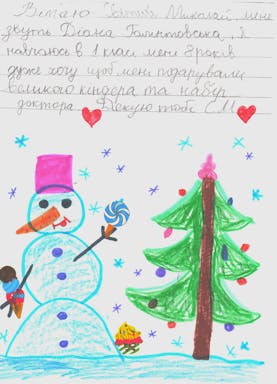 Вітаю Святий Миколай мене
звуть Діана , я
навчаюся в 1 класі мені 8 років
дуже хочу щоб мені подарували
великого кіндера та набір
доктора Дякую тобі С.М